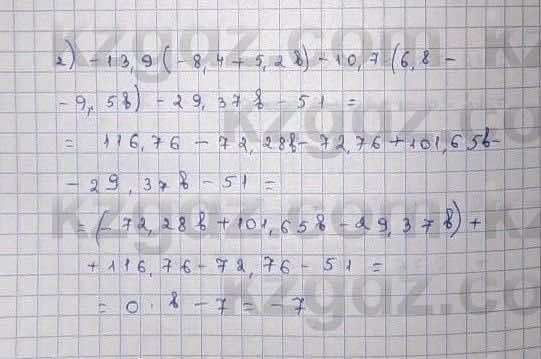 2) - 13,9 (-8,4 + 5,2в) - 10,7 (6,8 -
- 9,5в) - 29,37в - 51 =
= 116,76 - 72,28в - 72,76 + 101,65в -
- 29,37в - 51 =
= (-72,28в + 101,65в - 29,37в) +
+ 116,76 - 72,76 - 51 =
= 0 · в - 7 = -7